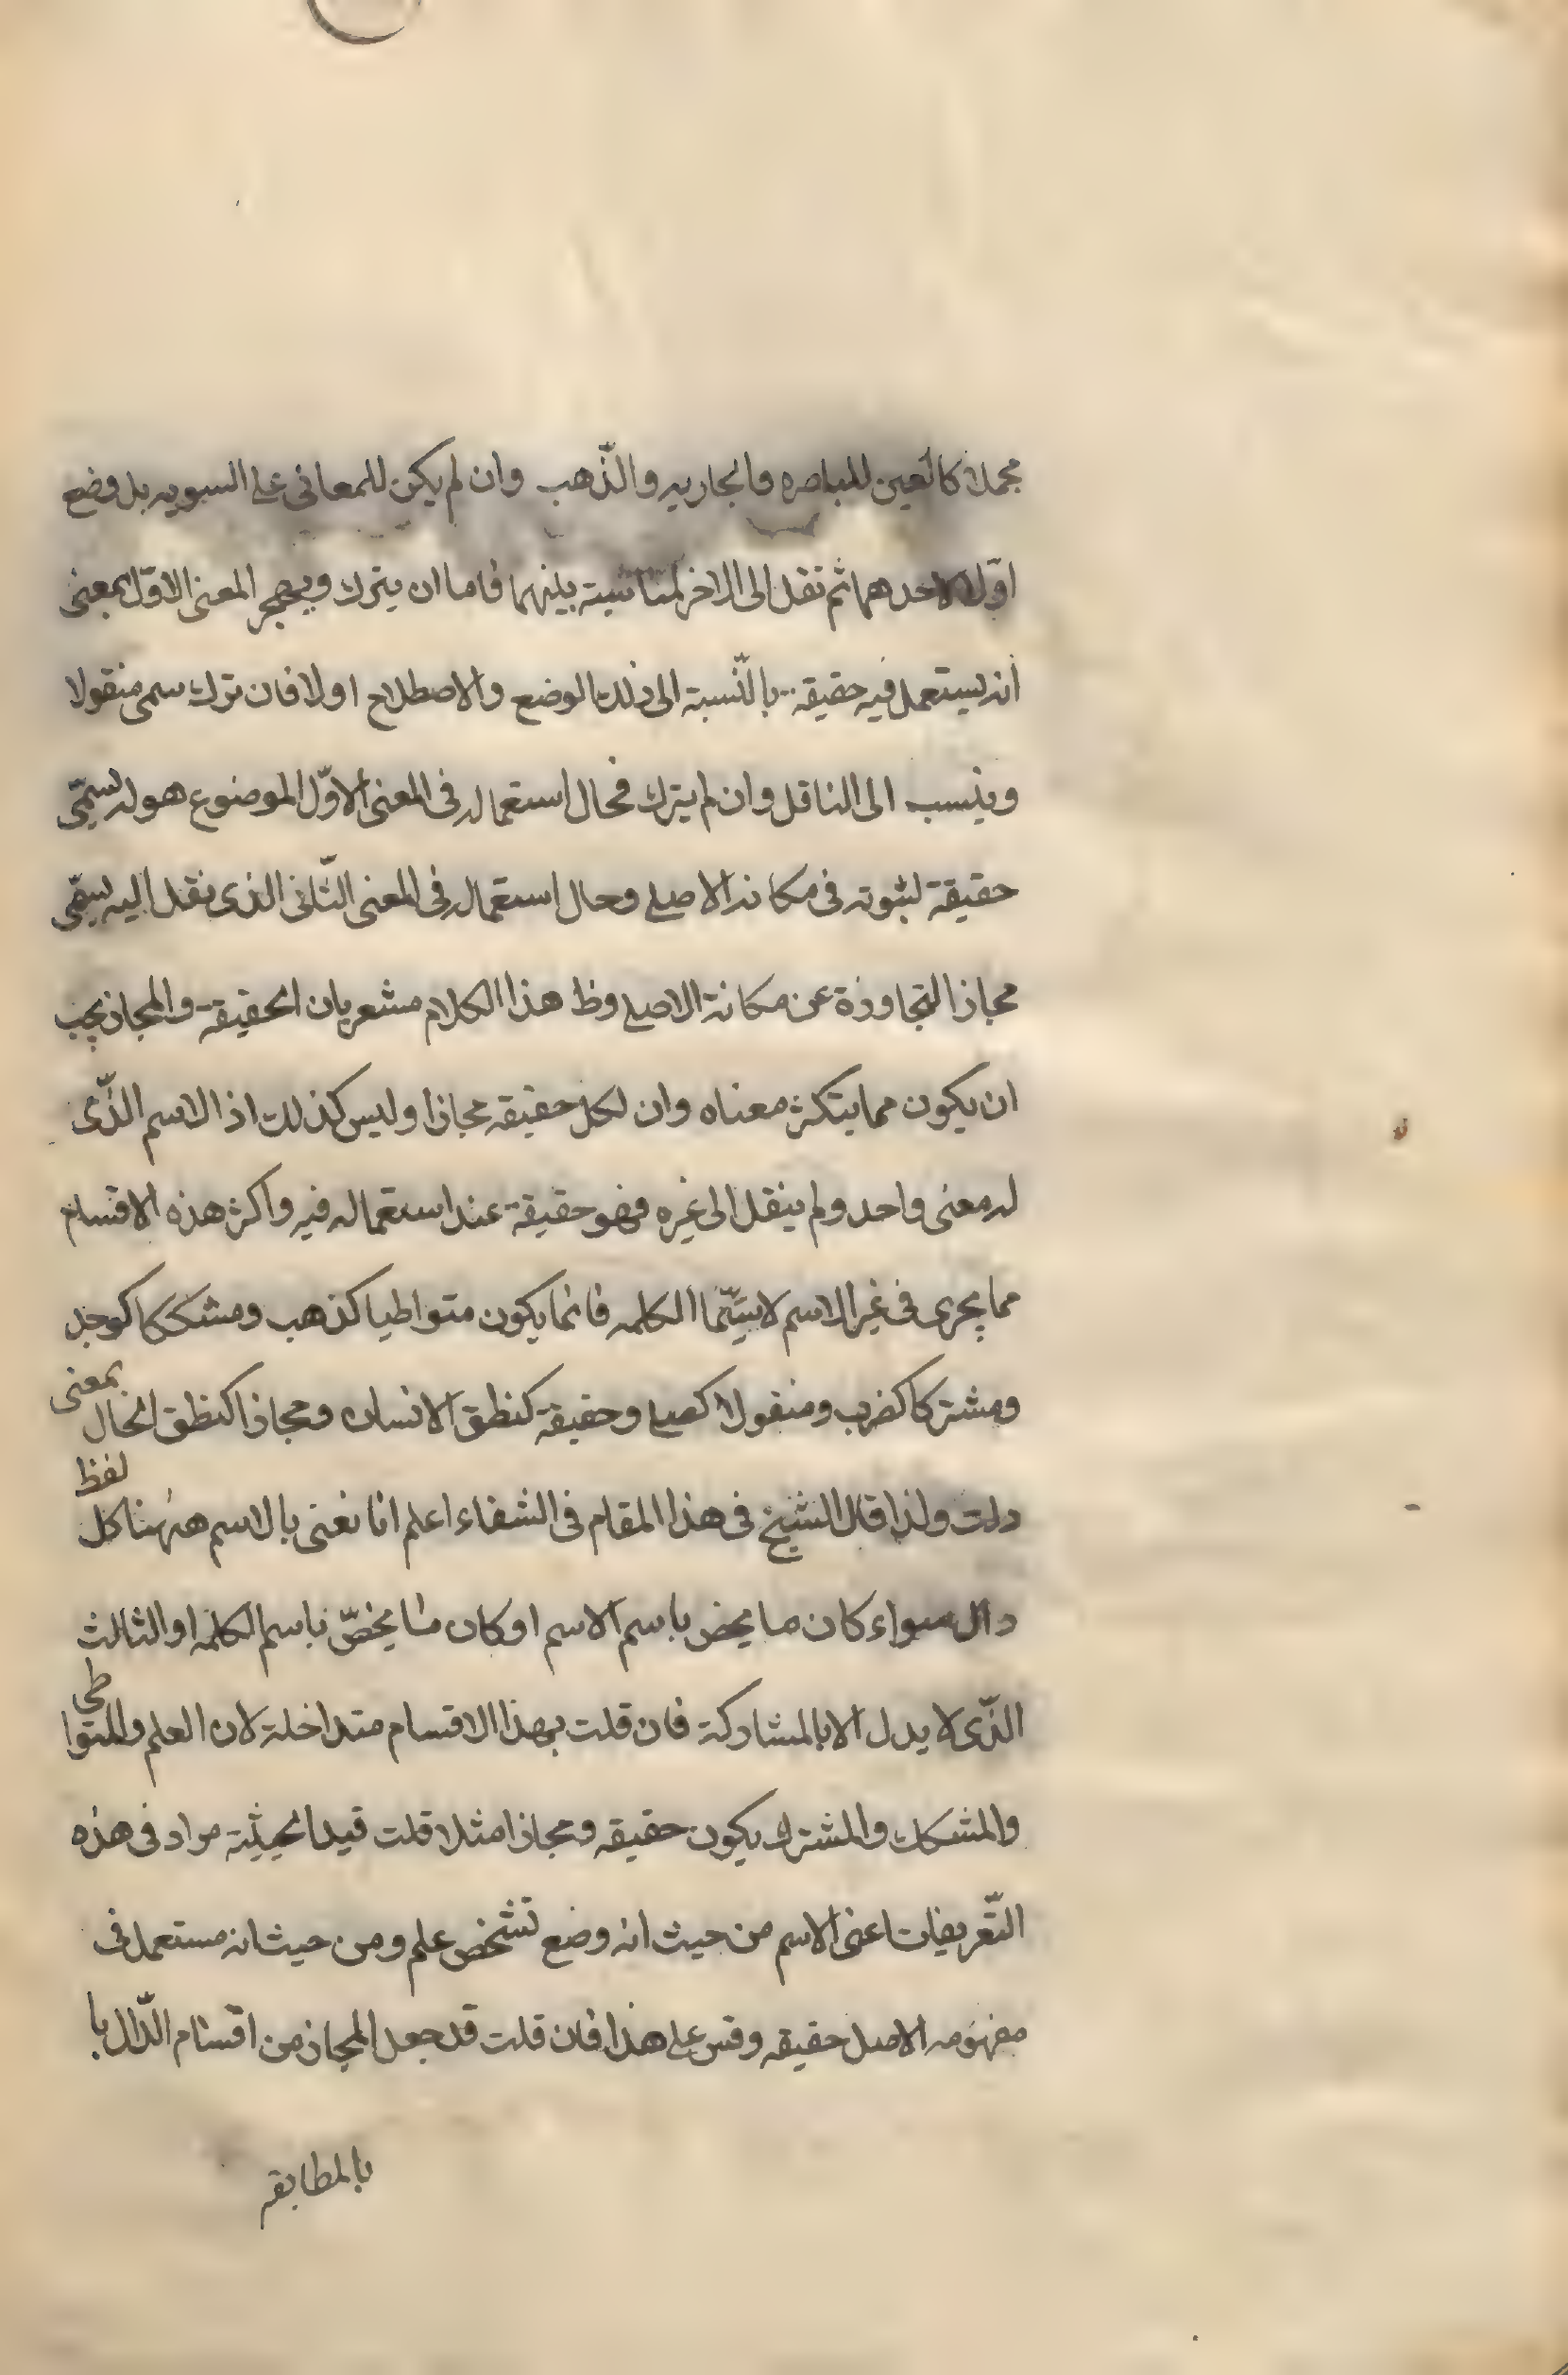 مجملا كالعين للباصره والجاريه والذّهب وان لم يكن للمعانى على السويه بل وضع
اوّلا لاحدهما ثم نقل الى الاخر لمناسبته بينهما فاما ان يترك ويهجر المعنى الاوّل بمعنى
انه يستعمل فيه حقيقة بالنّسبة الى ذلك الوضع والاصطلاح اولا فان ترك سمى منقولا
وينسب الى الناقل وان لم يترك فحال استعماله فى المعنى الاوّل الموضوع هو له يسمّى
حقيقة لثبوته فى مكانه الاصلى وحال استعماله فى المعنى الثّانى الذى نقل اليه يسمّى
مجازا لتجاوزة عن مكانة الاصلى وظ هذا الكلام مشعر بان الحقيقة والمجاز يجب
ان يكون مما يتكثر معناه وان لكل حقيقه مجازا وليس كذلك اذ الاسم الذّى
له معنى واحد ولم ينقل الى غيره فهو حقيقة عند استعماله فيه واكثر هذه الاقسام
مما يجرى فى غير الاسم لاسيّما الكلمه فانما يكون متواطيا كذهب ومشككا كوجد
ومشتركا كضرب ومنقولا كصلى وحقيقة كنطق الانسان ومجازا كنطق الحال بمعنى
دلت ولذا قال الشيخ فى هذا المقام فى الشفاء اعلم انا نعنى بالاسم ههنا كل لفظ
دال سواء كان ما يخص باسم الاسم او كان ما يخصّ باسم الكلمه او الثالث
الذّى لا يدل الا بالمشاركة فان قلت بهذا الاقسام متداخلة لان العلم والمتواطى
والمشكك والمشترك يكون حقيقه ومجازا مثلا قلت قيد الحيثيّة مراد فى هذه
التّعريفات اعنى الاسم من حيث انه وضع تشخص علم ومن حيث انه مستعمل فى
مفهومه الاصل حقيقه وقس على هذا فان قلت قد جعل المجاز من اقسام الدّال با
بالمطابقه